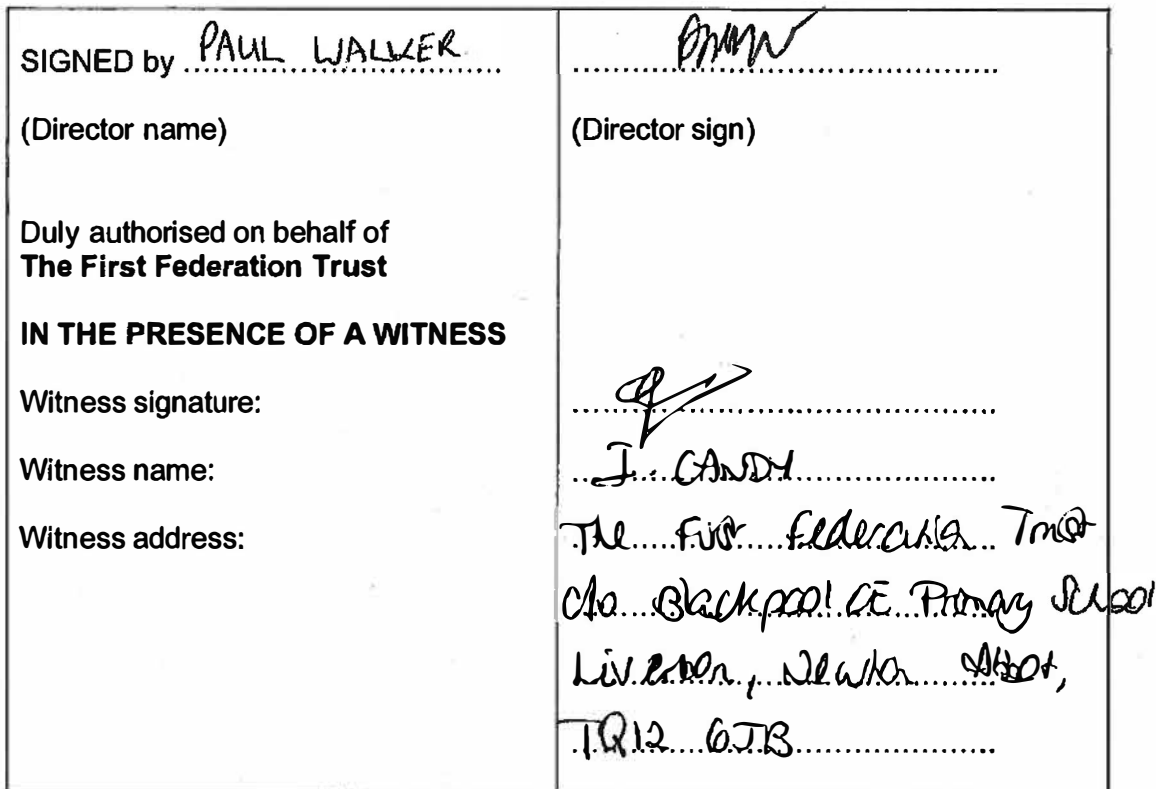 SIGNED by PAUL WALKER
(Director name)
(Director sign)
Duly authorised on behalf of
The First Federation Trust
IN THE PRESENCE OF A WITNESS
Witness signature:
Witness name: I. CANDY
Witness address: The First Federation Trust
c/o Blackpool CE Primary School
Liverton, Newton Abbot,
TQ12 6JB